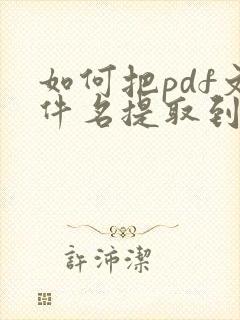 如何把pdf文
件名提取到
許沛潔